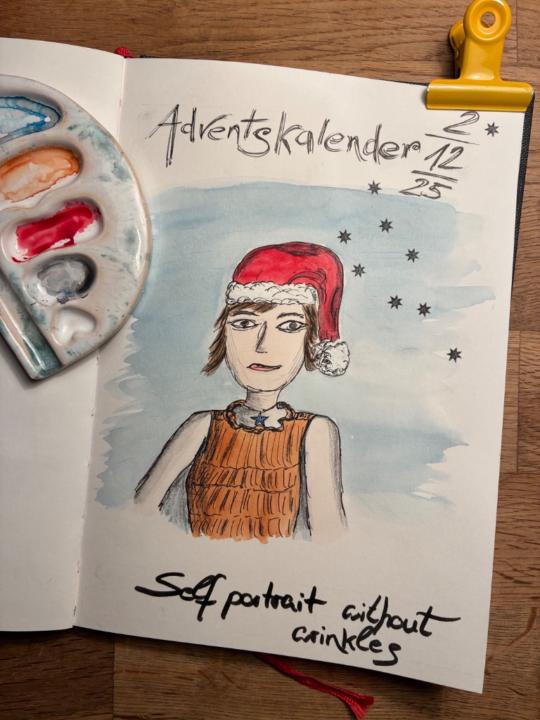 Adventskalender 2
12
25
Self portrait without
wrinkles